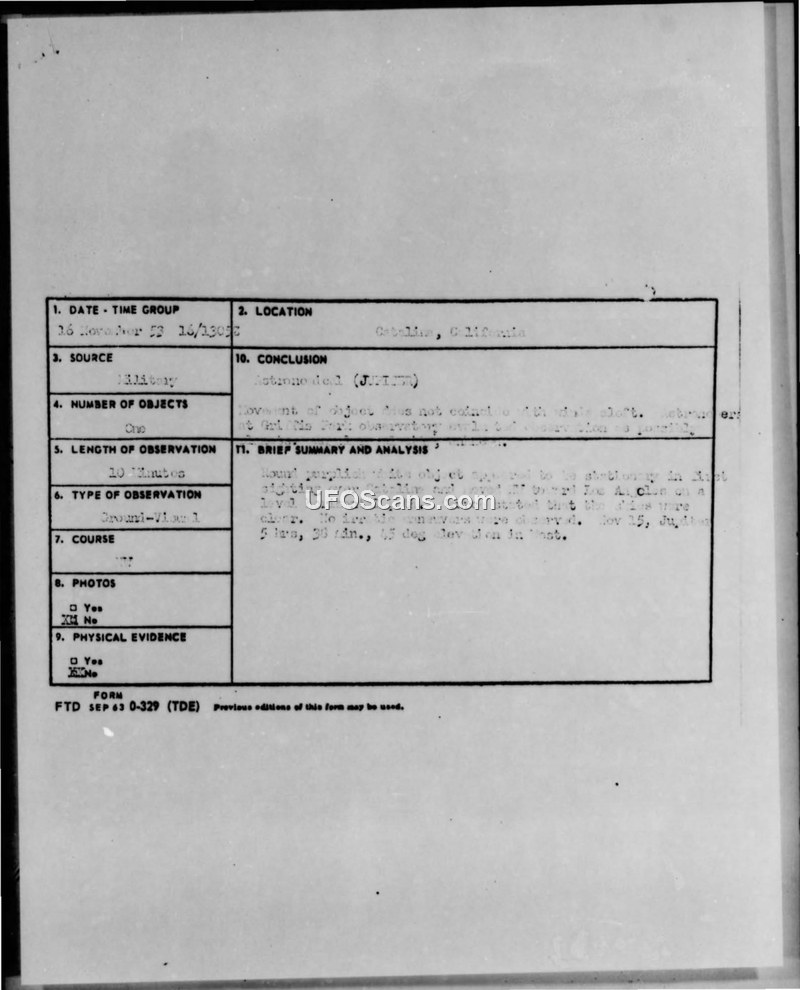 1. DATE - TIME GROUP
16 November 53 16/1305Z
2. LOCATION
Catalina, California
3. SOURCE
Military
10. CONCLUSION
Astronomical (JUPITER)
Movement of object does not coincide with winds aloft. Astronomer
at Griffith Park observatory evaluated observation as possibly
4. NUMBER OF OBJECTS
One
5. LENGTH OF OBSERVATION
10 Minutes
11. BRIEF SUMMARY AND ANALYSIS
Round purplish white object appeared to be stationary in first
sighting over Catalina and moved toward Los Angeles on a
level stated that the skies were
clear. No erratic maneuvers were observed. Nov 15, Jupiter
5 hrs, 38 min., 45 deg elevation in West.
UFOScans.com
6. TYPE OF OBSERVATION
Ground-Visual
7. COURSE
8. PHOTOS
□ Yes
XX No
9. PHYSICAL EVIDENCE
□ Yes
XX No
FORM
FTD SEP 63 0-329 (TDE) Previous editions of this form may be used.